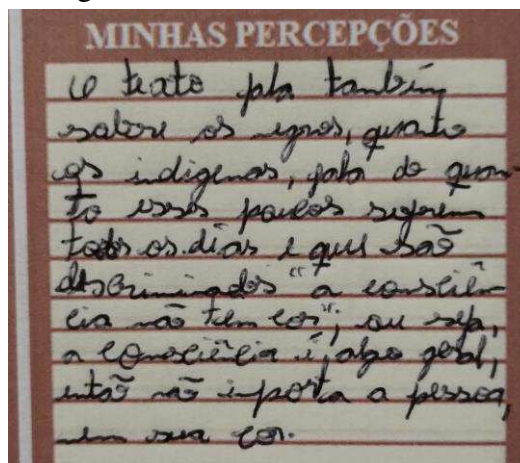 MINHAS PERCEPÇÕES
O texto fala também
sobre os negros, quanto
os indígenas, fala do quan-
to esses povos sofrem
todos os dias e que são
discriminados "a consciên-
cia não tem cor", ou seja,
a consciência é algo geral,
então não importa a pessoa,
nem sua cor.